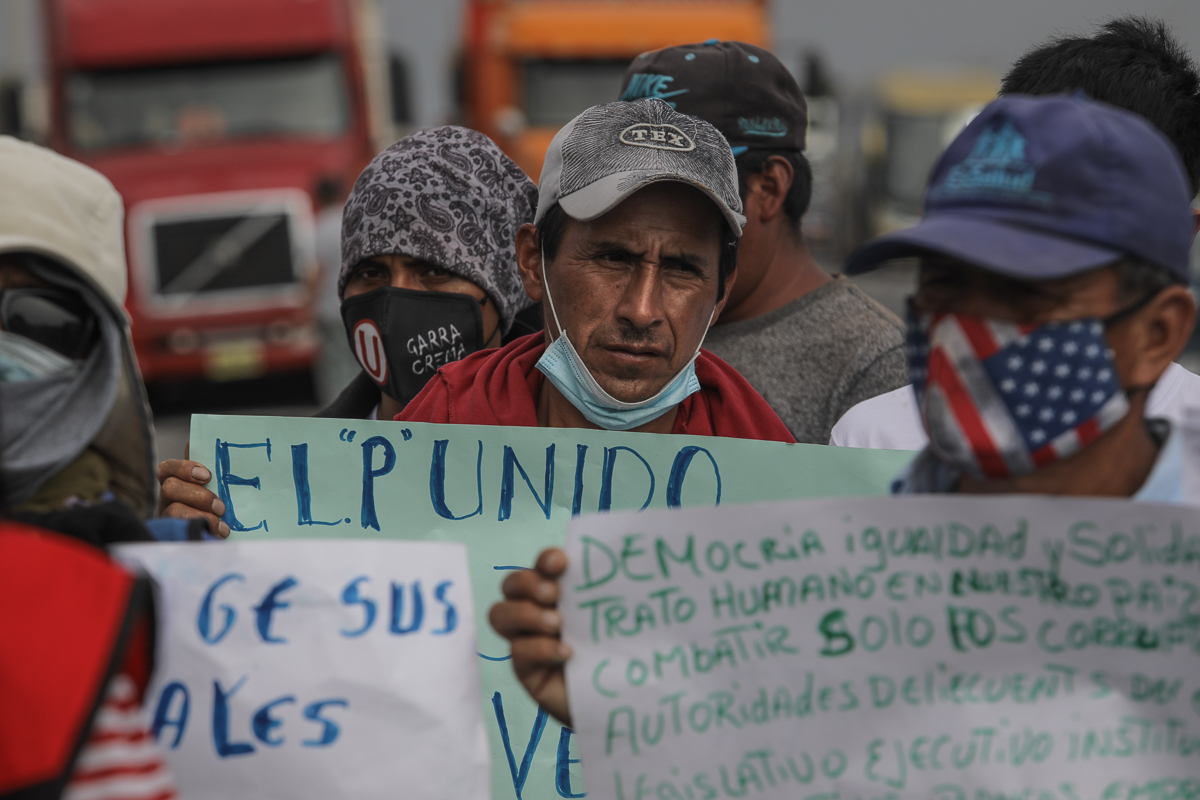 NIKE
TEX
EsSalud
U GARRA
CREMA
EL "P" UNIDO
GE SUS
ALES
VE
DEMOCRIA iguAlDAD y Solida
TRATO HUMANO EN NUESTRO PAIZ
COMBATIR SOLO lOS CORRU
AUTORIDADES DELiECUENTS DE
LEGISLATIVO EJECUTIVO INSTITU